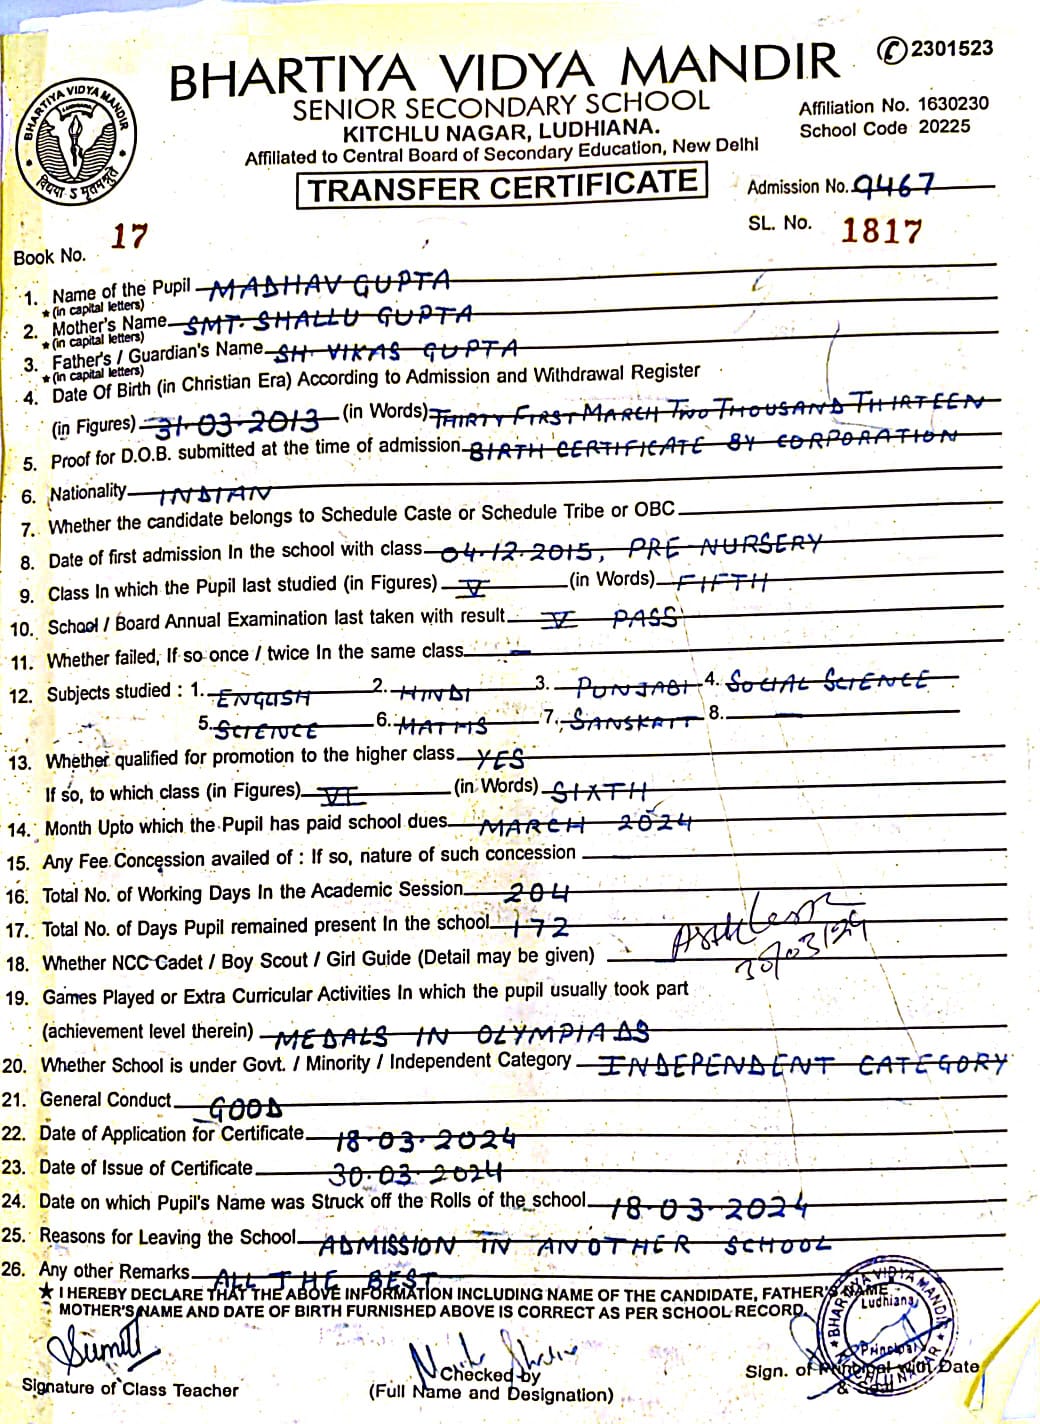 BHARTIYA VIDYA MANDIR
✆2301523
SENIOR SECONDARY SCHOOL
KITCHLU NAGAR, LUDHIANA.
Affiliated to Central Board of Secondary Education, New Delhi
Affiliation No. 1630230
School Code 20225
TRANSFER CERTIFICATE
Admission No. 9467
BHARTIYA VIDYA MANDIR
Book No. 17
SL. No. 1817
1. Name of the Pupil MADHAV GUPTA
★ (in capital letters)
2. Mother's Name SMT. SHALLU GUPTA
★ (in capital letters)
3. Father's / Guardian's Name SH. VIKAS GUPTA
★ (in capital letters)
4. Date Of Birth (in Christian Era) According to Admission and Withdrawal Register
(in Figures) 31-03-2013 (in Words) THIRTY FIRST MARCH TWO THOUSAND THIRTEEN
5. Proof for D.O.B. submitted at the time of admission BIRTH CERTIFICATE BY CORPORATION
6. Nationality INDIAN
7. Whether the candidate belongs to Schedule Caste or Schedule Tribe or OBC
8. Date of first admission In the school with class 04.12.2015, PRE-NURSERY
9. Class In which the Pupil last studied (in Figures) V (in Words) FIFTH
10. School / Board Annual Examination last taken with result V PASS
11. Whether failed, If so once / twice In the same class —
12. Subjects studied : 1. ENGLISH 2. HINDI 3. PUNJABI 4. SOCIAL SCIENCE
5. SCIENCE 6. MATHS 7. SANSKRIT 8.
13. Whether qualified for promotion to the higher class YES
If so, to which class (in Figures) VI (in Words) SIXTH
14. Month Upto which the Pupil has paid school dues MARCH 2024
15. Any Fee Concession availed of : If so, nature of such concession
16. Total No. of Working Days In the Academic Session 204
17. Total No. of Days Pupil remained present In the school 172
30/03/24
18. Whether NCC Cadet / Boy Scout / Girl Guide (Detail may be given)
19. Games Played or Extra Curricular Activities In which the pupil usually took part
(achievement level therein) MEDALS IN OLYMPIADS
20. Whether School is under Govt. / Minority / Independent Category INDEPENDENT CATEGORY
21. General Conduct GOOD
22. Date of Application for Certificate 18.03.2024
23. Date of Issue of Certificate 30.03.2024
24. Date on which Pupil's Name was Struck off the Rolls of the school 18-03-2024
25. Reasons for Leaving the School ADMISSION IN ANOTHER SCHOOL
26. Any other Remarks ALL THE BEST
★ I HEREBY DECLARE THAT THE ABOVE INFORMATION INCLUDING NAME OF THE CANDIDATE, FATHER'S NAME
MOTHER'S NAME AND DATE OF BIRTH FURNISHED ABOVE IS CORRECT AS PER SCHOOL RECORD.
BHARTIYA VIDYA MANDIR
Ludhiana
Principal
Signature of Class Teacher
Checked by
(Full Name and Designation)
Sign. of Principal with Date
& Seal